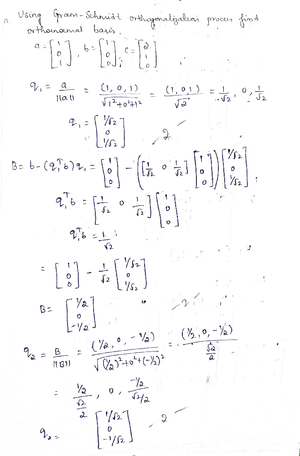 Using Gram-Schmidt orthogonalization process find
orthonormal basis.
a = [1 0 1], b = [1 0 0], c = [2 1 0]
q₁ = a/||a|| = (1, 0, 1)/√(1²+0²+1²) = (1, 0, 1)/√2 = 1/√2, 0, 1/√2
q₁ = [1/√2 0 1/√2]
2
B = b-(q₁ᵀb)q₁ = [1 0 0] - ([1/√2 0 1/√2] [1 0 0]) [1/√2 0 1/√2]
q₁ᵀb = [1/√2 0 1/√2] [1 0 0]
q₁ᵀb = 1/√2
= [1 0 0] - 1/√2 [1/√2 0 1/√2]
B = [1/2 0 -1/2]
2
q₂ = B/||B|| = (1/2, 0, -1/2)/√((1/2)²+0²+(-1/2)²) = (1/2, 0, -1/2)/(√2/2)
= (1/2)/(√2/2), 0, (-1/2)/(√2/2)
q₂ = [1/√2 0 -1/√2]
2